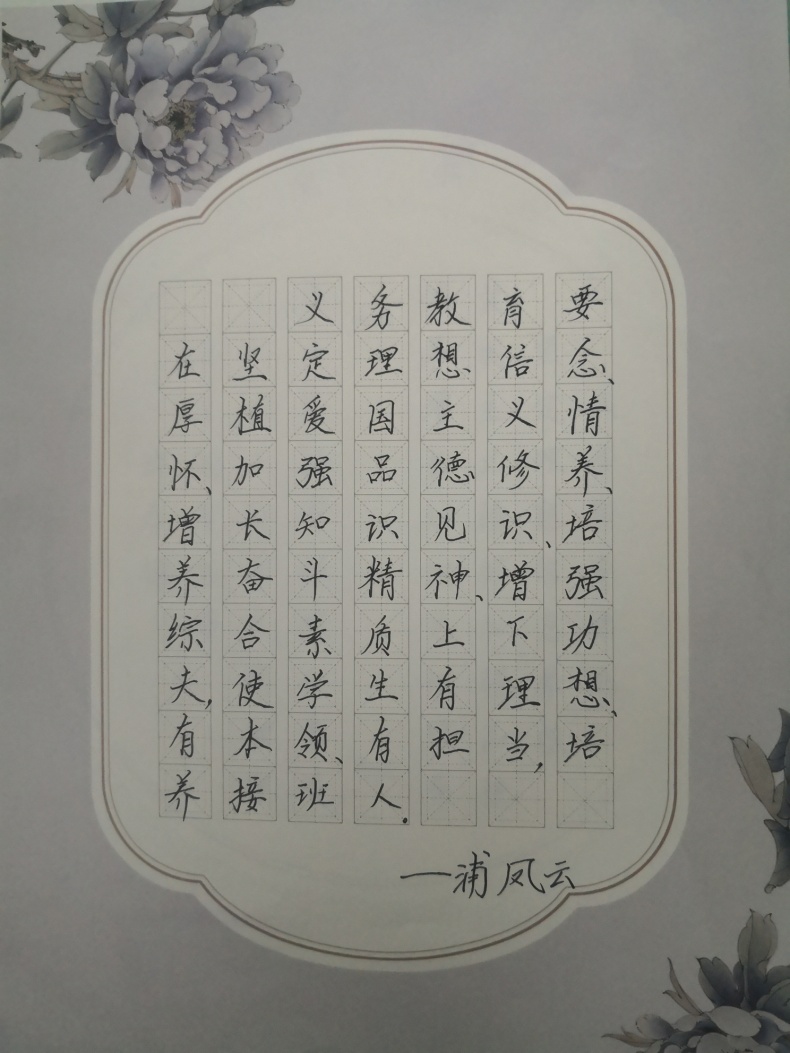 义务教育要
在坚定理想信念、
厚植爱国主义情
怀、加强品德修养、
增长知识见识、培
养奋斗精神、增强
综合素质上下功
夫,使学生有理想、
有本领、有担当,培
养接班人.
一浦凤云